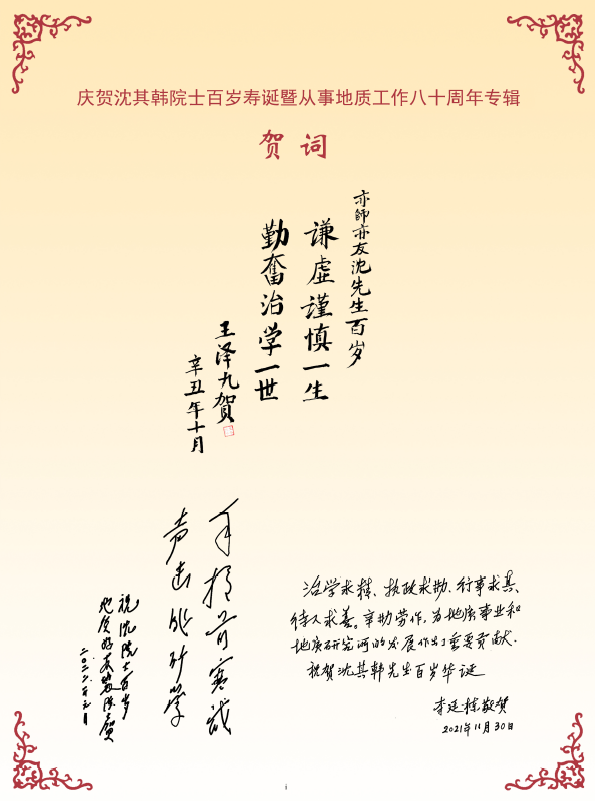 庆贺沈其韩院士百岁寿诞暨从事地质工作八十周年专辑
贺词
亦師亦友沈先生百岁
谦虚谨慎一生
勤奋治学一世
王泽九贺
辛丑年十月
祝沈院士百岁
治学求精、执政求勤、行事求真、
待人求善。辛勤劳作,为地质事业和
地质研究所的发展作出了重要贡献.
祝贺沈其韩先生百岁华诞
李廷栋敬贺
2021年11月30日
i